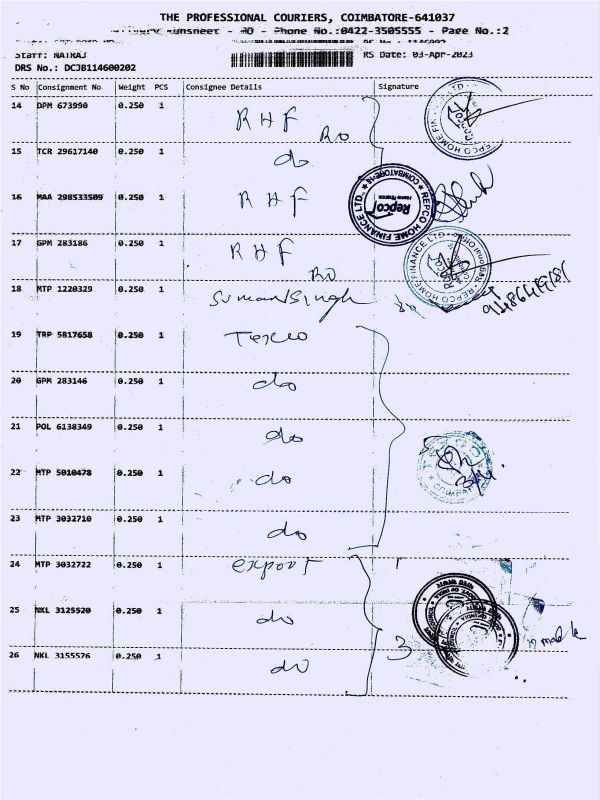 THE PROFESSIONAL COURIERS, COIMBATORE-641037
Runsheet - RO - Phone No.:0422-3505555 - Page No.:2
Staff: NATRAJ RS Date: 03-Apr-2023
DRS No.: DCJB114600202
S No Consignment No Weight PCS Consignee Details Signature
14 DPM 673990 0.250 1 RHF RO
15 TCR 29617140 0.250 1 do
16 MAA 298533509 0.250 1 RHF
REPCO HOME FINANCE LTD. COIMBATORE
Repco
Home Finance
17 GPM 283186 0.250 1 RHF RO
REPCO HOME FINANCE LTD.
18 MTP 1220329 0.250 1 Suman Singh
19 TRP 5817658 0.250 1 Texco
20 GPM 283146 0.250 1 do
21 POL 6138349 0.250 1 do
22 MTP 5010478 0.250 1 do
23 MTP 3032710 0.250 1 do
24 MTP 3032722 0.250 1 export
25 NKL 3125520 0.250 1 do
26 NKL 3155576 0.250 1 do
3